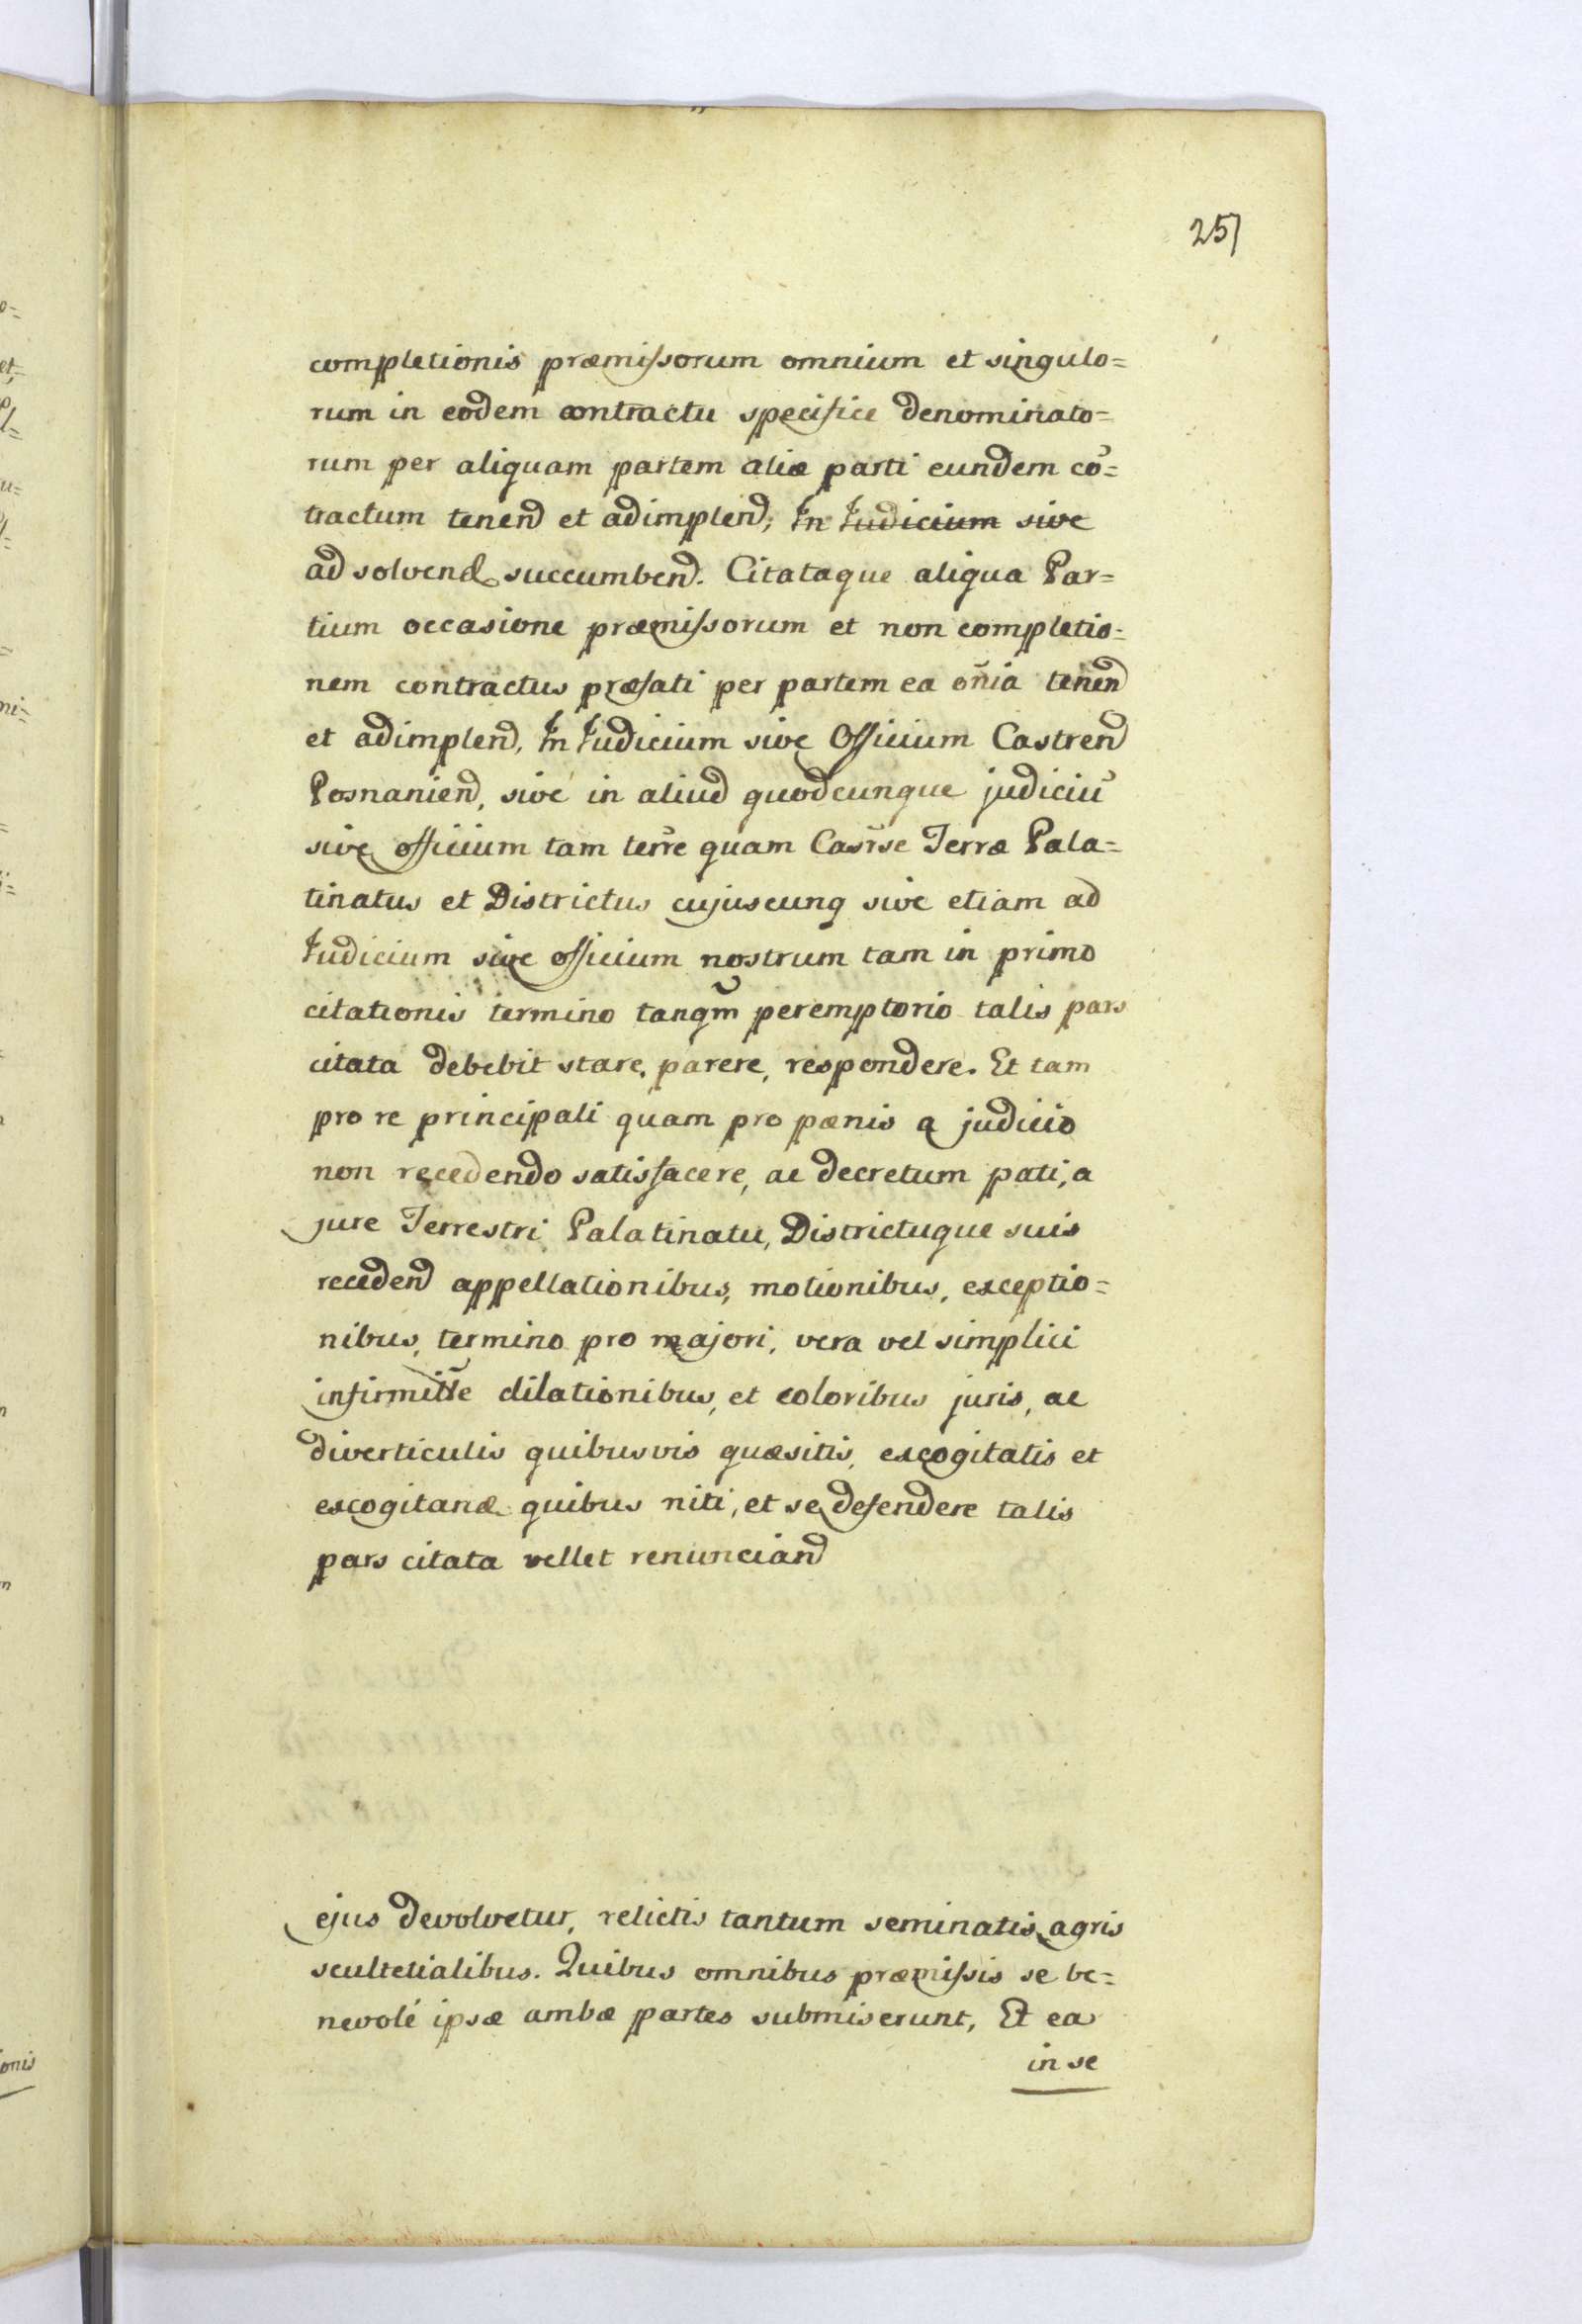 251
completionis præmissorum omnium et singulo=
rum in eodem contractu specifice denominato=
rum per aliquam partem aliæ parti eundem cō=
tractum tenend et adimplend, In Judicium sive
ad solvend succumbend. Citataque aliqua Par=
tium occasione præmissorum et non completio=
nem contractus præfati per partem ea oñia tenend
et adimplend, In Judicium sive Officium Castrend
Posnaniend, sive in aliud quodcunque judiciū
sive officium tam terr̃e quam Casr̃se Terræ Pala=
tinatus et Districtus cujuscunq sive etiam ad
Judicium sive officium nostrum tam in primo
citationis termino tanqm̃ peremptorio talis pars
citata debebit stare, parere, respondere. Et tam
pro re principali quam pro pænis a judicio
non recedendo satisfacere, ac decretum pati, a
jure Terrestri Palatinatu, Districtuque suis
recedend appellationibus, motionibus, exceptio=
nibus, termino pro majori, vera vel simplici
infirmitt̃e dilationibus, et coloribus juris, ac
diverticulis quibusvis quæsitis, excogitatis et
excogitand quibus niti, et se defendere talis
pars citata vellet renunciand
ejus devolvetur, relictis tantum seminatis agris
scultetialibus. Quibus omnibus præmissis se be=
nevolé ipsæ ambæ partes submiserunt, Et ea
in se